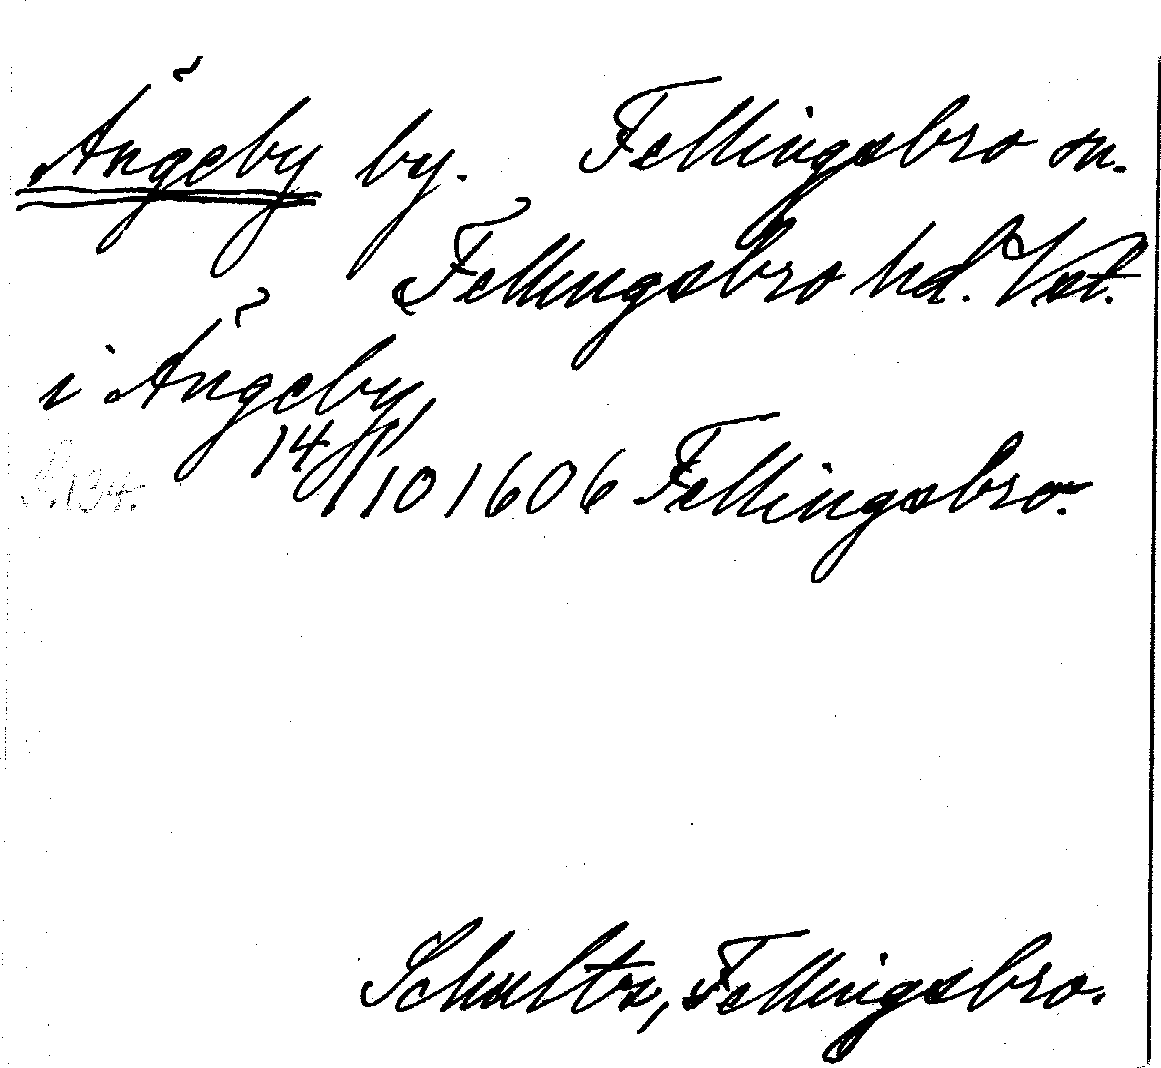 Ängeby by. Fellingsbro sn.
Fellingsbro hd. Vstl.
i Ängeby
14/10 1606 Fellingsbro.
S. 134.
Schultz, Fellingsbro.